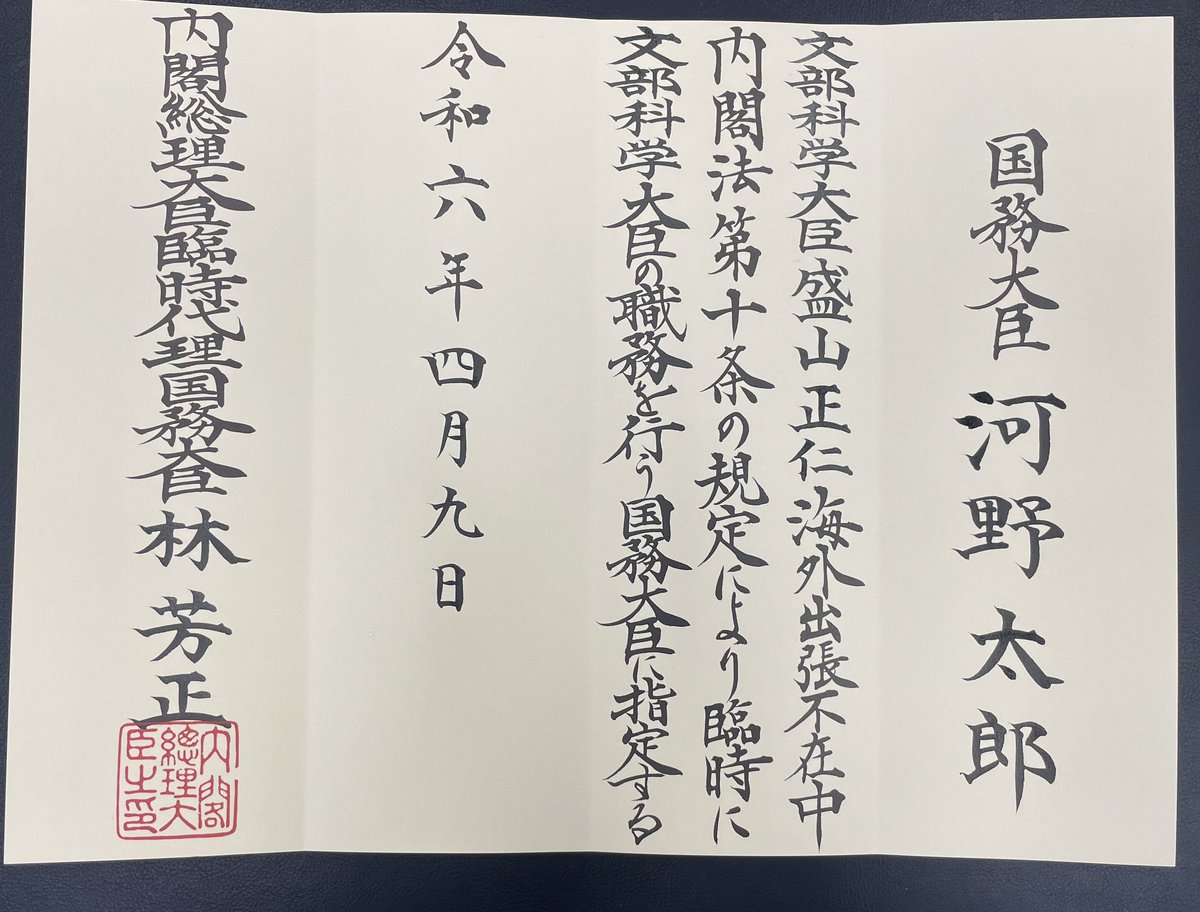 国務大臣 河野太郎
文部科学大臣盛山正仁海外出張不在中
内閣法第十条の規定により臨時に
文部科学大臣の職務を行う国務大臣に指定する
令和六年四月九日
内閣総理大臣臨時代理国務大臣 林芳正
内閣
總理大
臣之印